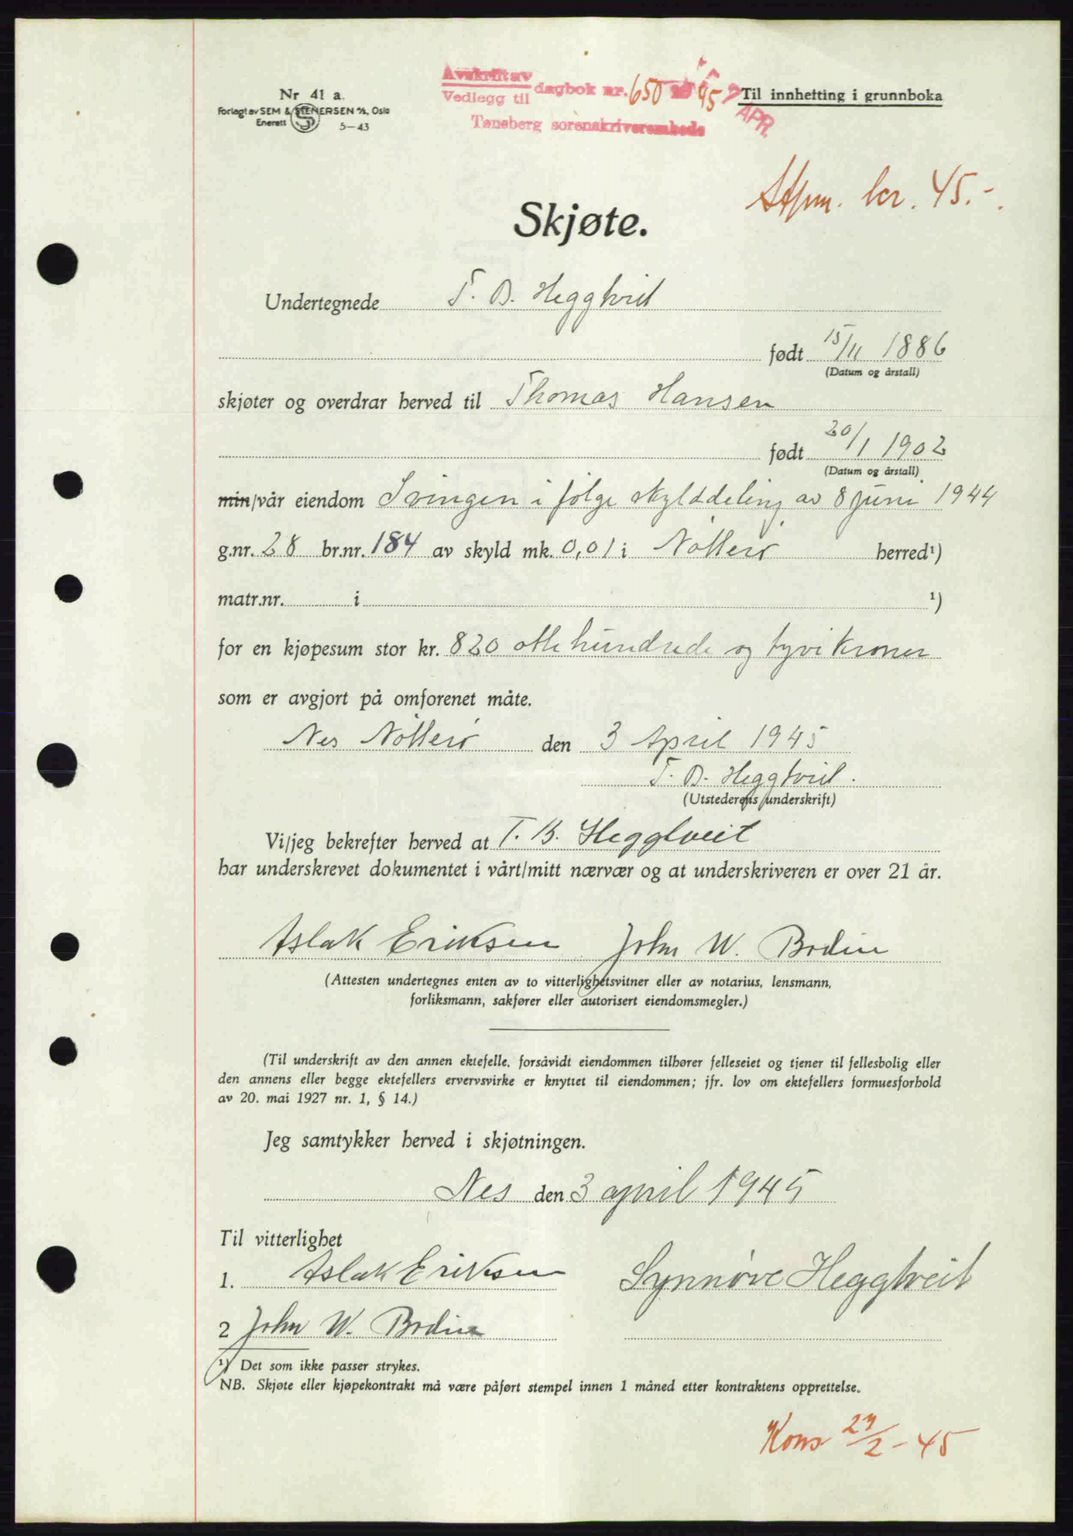 Nr 41 a.
Forlagt av SEM & STENERSEN A/S, Oslo
Enerett
S
5-43
Avskrift av
Vedlegg til dagbok nr. 650 1945
Tønsberg sorenskriverembede
APR.
Til innhefting i grunnboka
Stpm. kr. 45.-.
Skjøte.
Undertegnede T. B. Heggtveit
født 15/11 1886
(Datum og årstall)
skjøter og overdrar herved til Thomas Hansen
født 20/1 1902
(Datum og årstall)
min/vår eiendom Svingen i følge skylddeling av 8 juni 1944
g.nr. 28 br.nr. 184 av skyld mk. 0,01 i Nøtterø herred¹)
matr.nr. i ¹)
for en kjøpesum stor kr. 820 otte hundrede og tyvi kroner
som er avgjort på omforenet måte.
Nes Nøtterø den 3 April 1945
T. B. Heggtveit.
(Utstederens underskrift)
Vi/jeg bekrefter herved at T. B. Heggtveit
har underskrevet dokumentet i vårt/mitt nærvær og at underskriveren er over 21 år.
Aslak Eriksen John W. Bodin
(Attesten undertegnes enten av to vitterlighetsvitner eller av notarius, lensmann,
forliksmann, sakfører eller autorisert eiendomsmegler.)
(Til underskrift av den annen ektefelle, forsåvidt eiendommen tilhører felleseiet og tjener til fellesbolig eller
den annens eller begge ektefellers ervervsvirke er knyttet til eiendommen; jfr. lov om ektefellers formuesforhold
av 20. mai 1927 nr. 1, § 14.)
Jeg samtykker herved i skjøtningen.
Nes den 3 april 1945
Til vitterlighet
1. Aslak Eriksen
Synnøve Heggtveit
2 John W. Bodin
¹) Det som ikke passer strykes.
NB. Skjøte eller kjøpekontrakt må være påført stempel innen 1 måned etter kontraktens opprettelse.
Kons 27/2-45